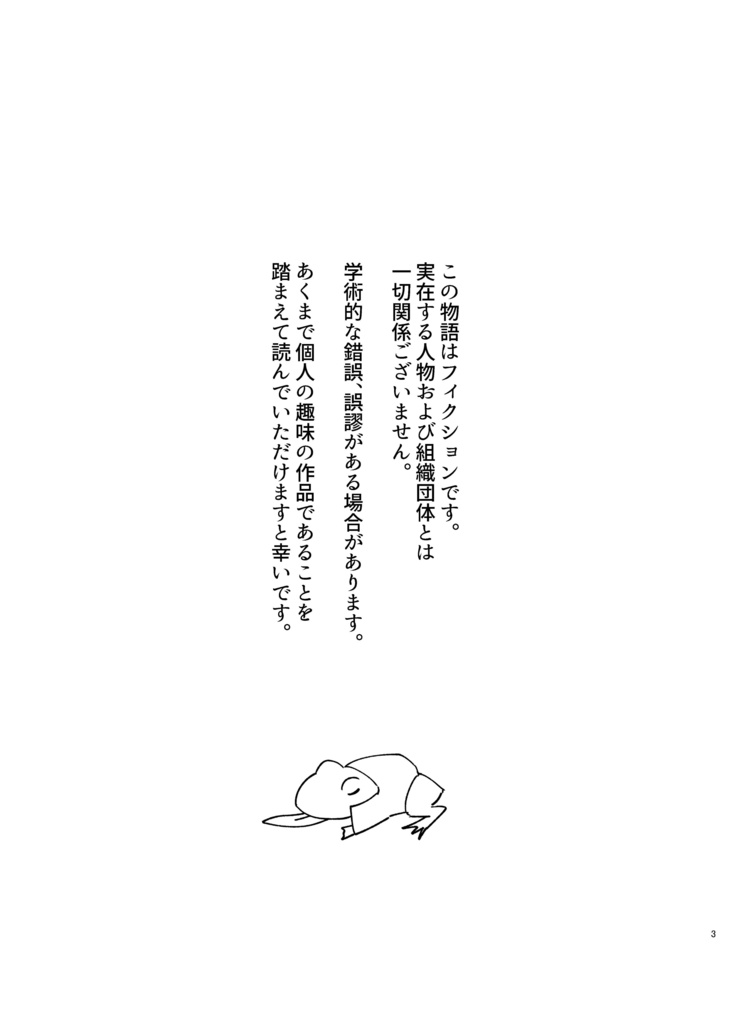 この物語はフィクションです。
実在する人物および組織団体とは
一切関係ございません。
学術的な錯誤、誤謬がある場合があります。
あくまで個人の趣味の作品であることを
踏まえて読んでいただけますと幸いです。
3